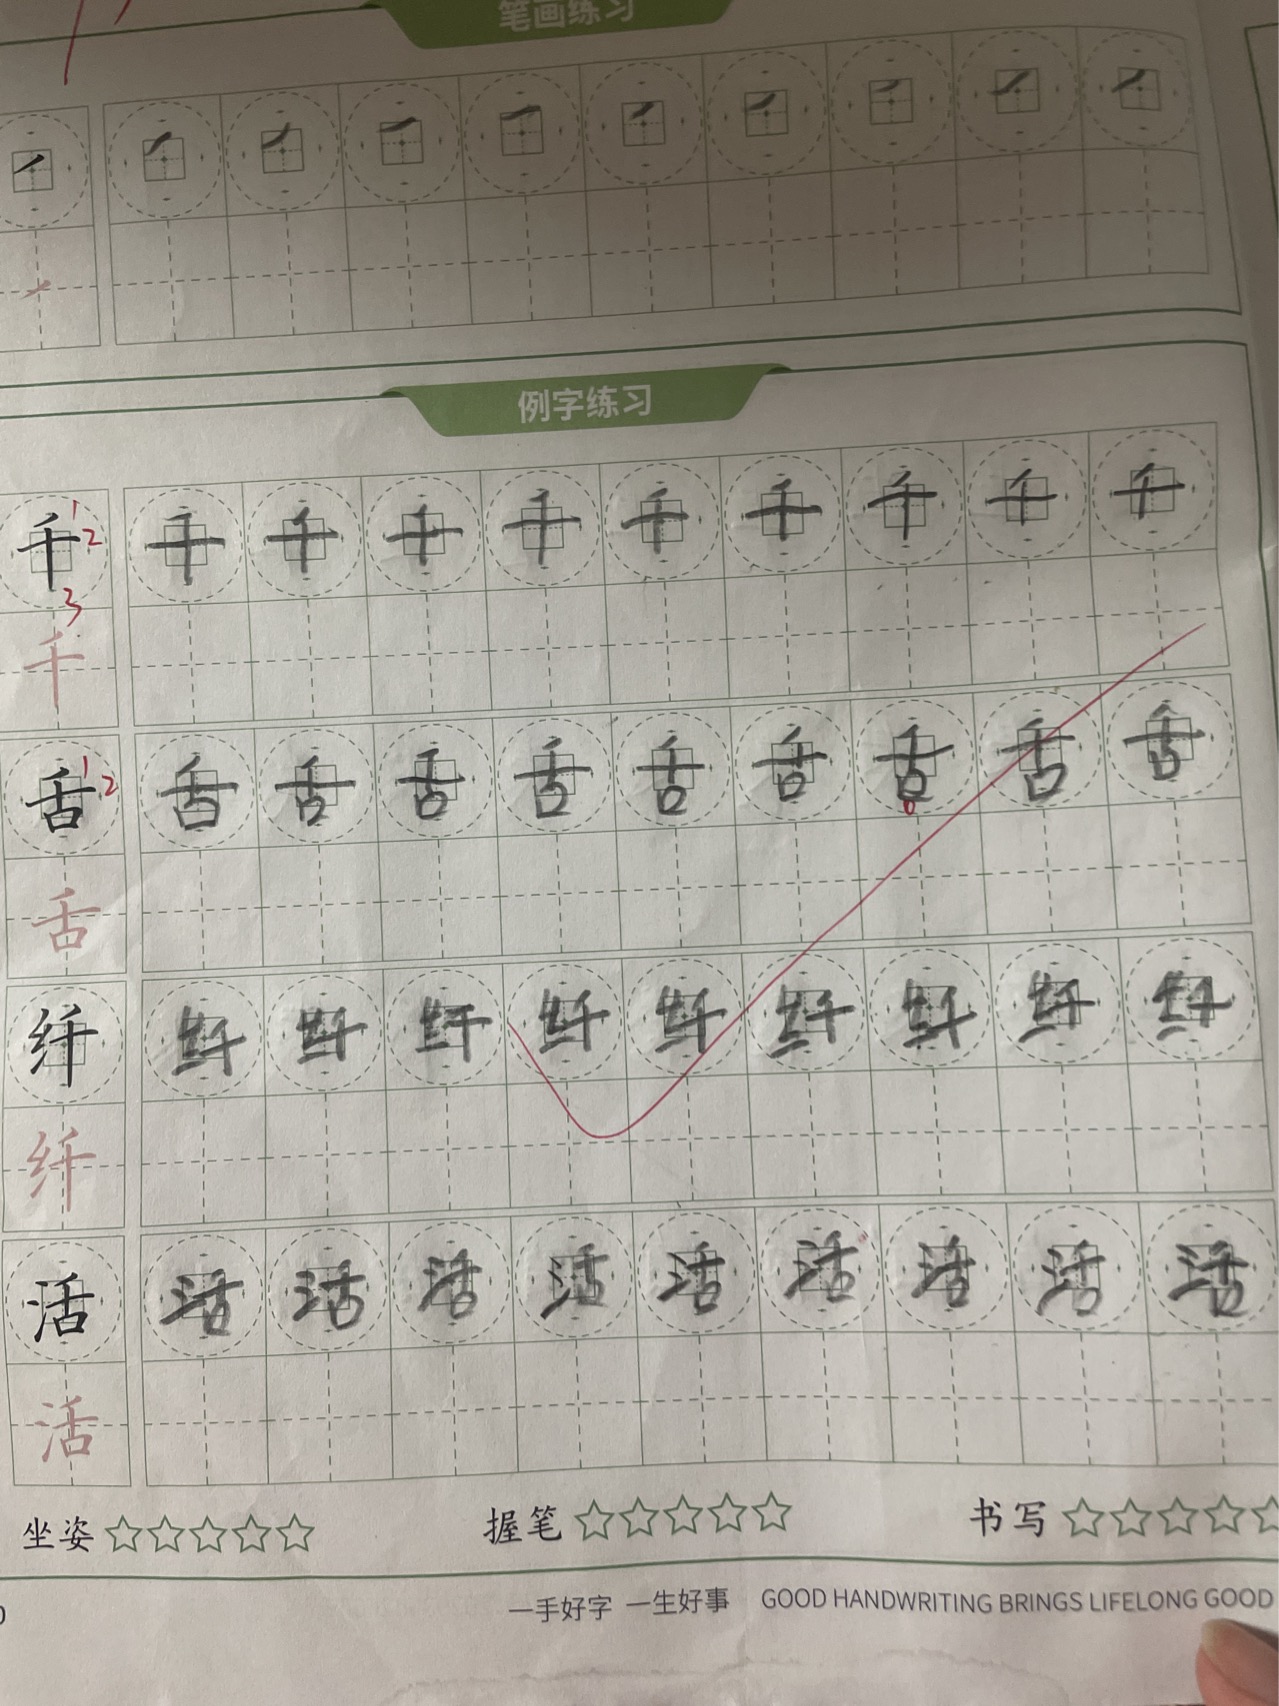 笔画练习
例字练习
千 1 2 3 千 千 千 千 千 千 千 千 千
千
舌 1 2 舌 舌 舌 舌 舌 舌 舌 舌 舌
舌
纤 纤 纤 纤 纤 纤 纤 纤 纤 纤
纤
活 活 活 活 活 活 活 活 活 活
活
坐姿 ☆☆☆☆☆ 握笔 ☆☆☆☆☆ 书写 ☆☆☆☆☆
一手好字 一生好事 GOOD HANDWRITING BRINGS LIFELONG GOOD